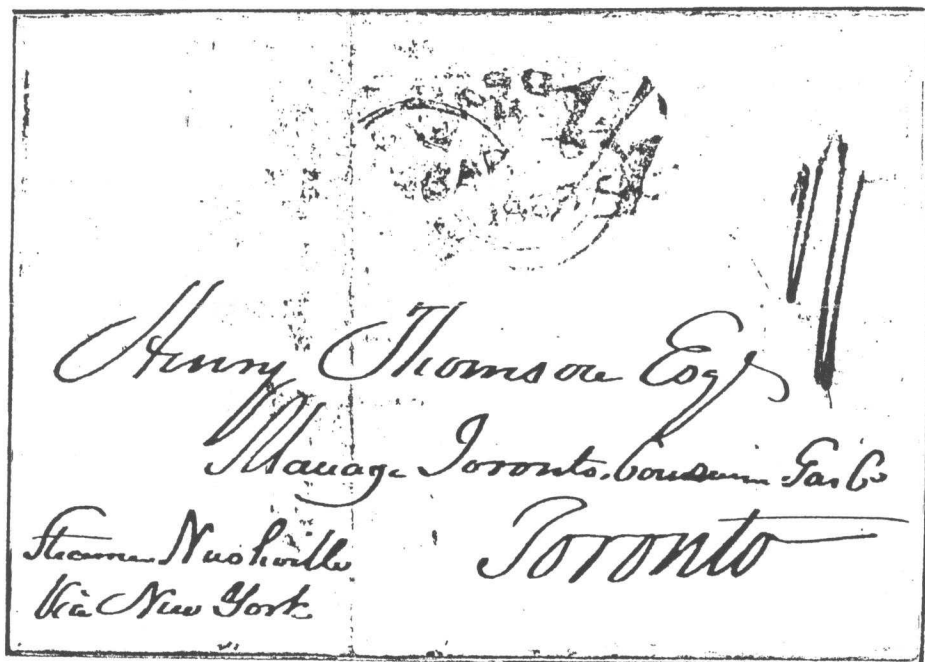 Henry Thomson Esqr
Manager Toronto Consum Gas Co
Toronto
Steamer Nashville
Via New York